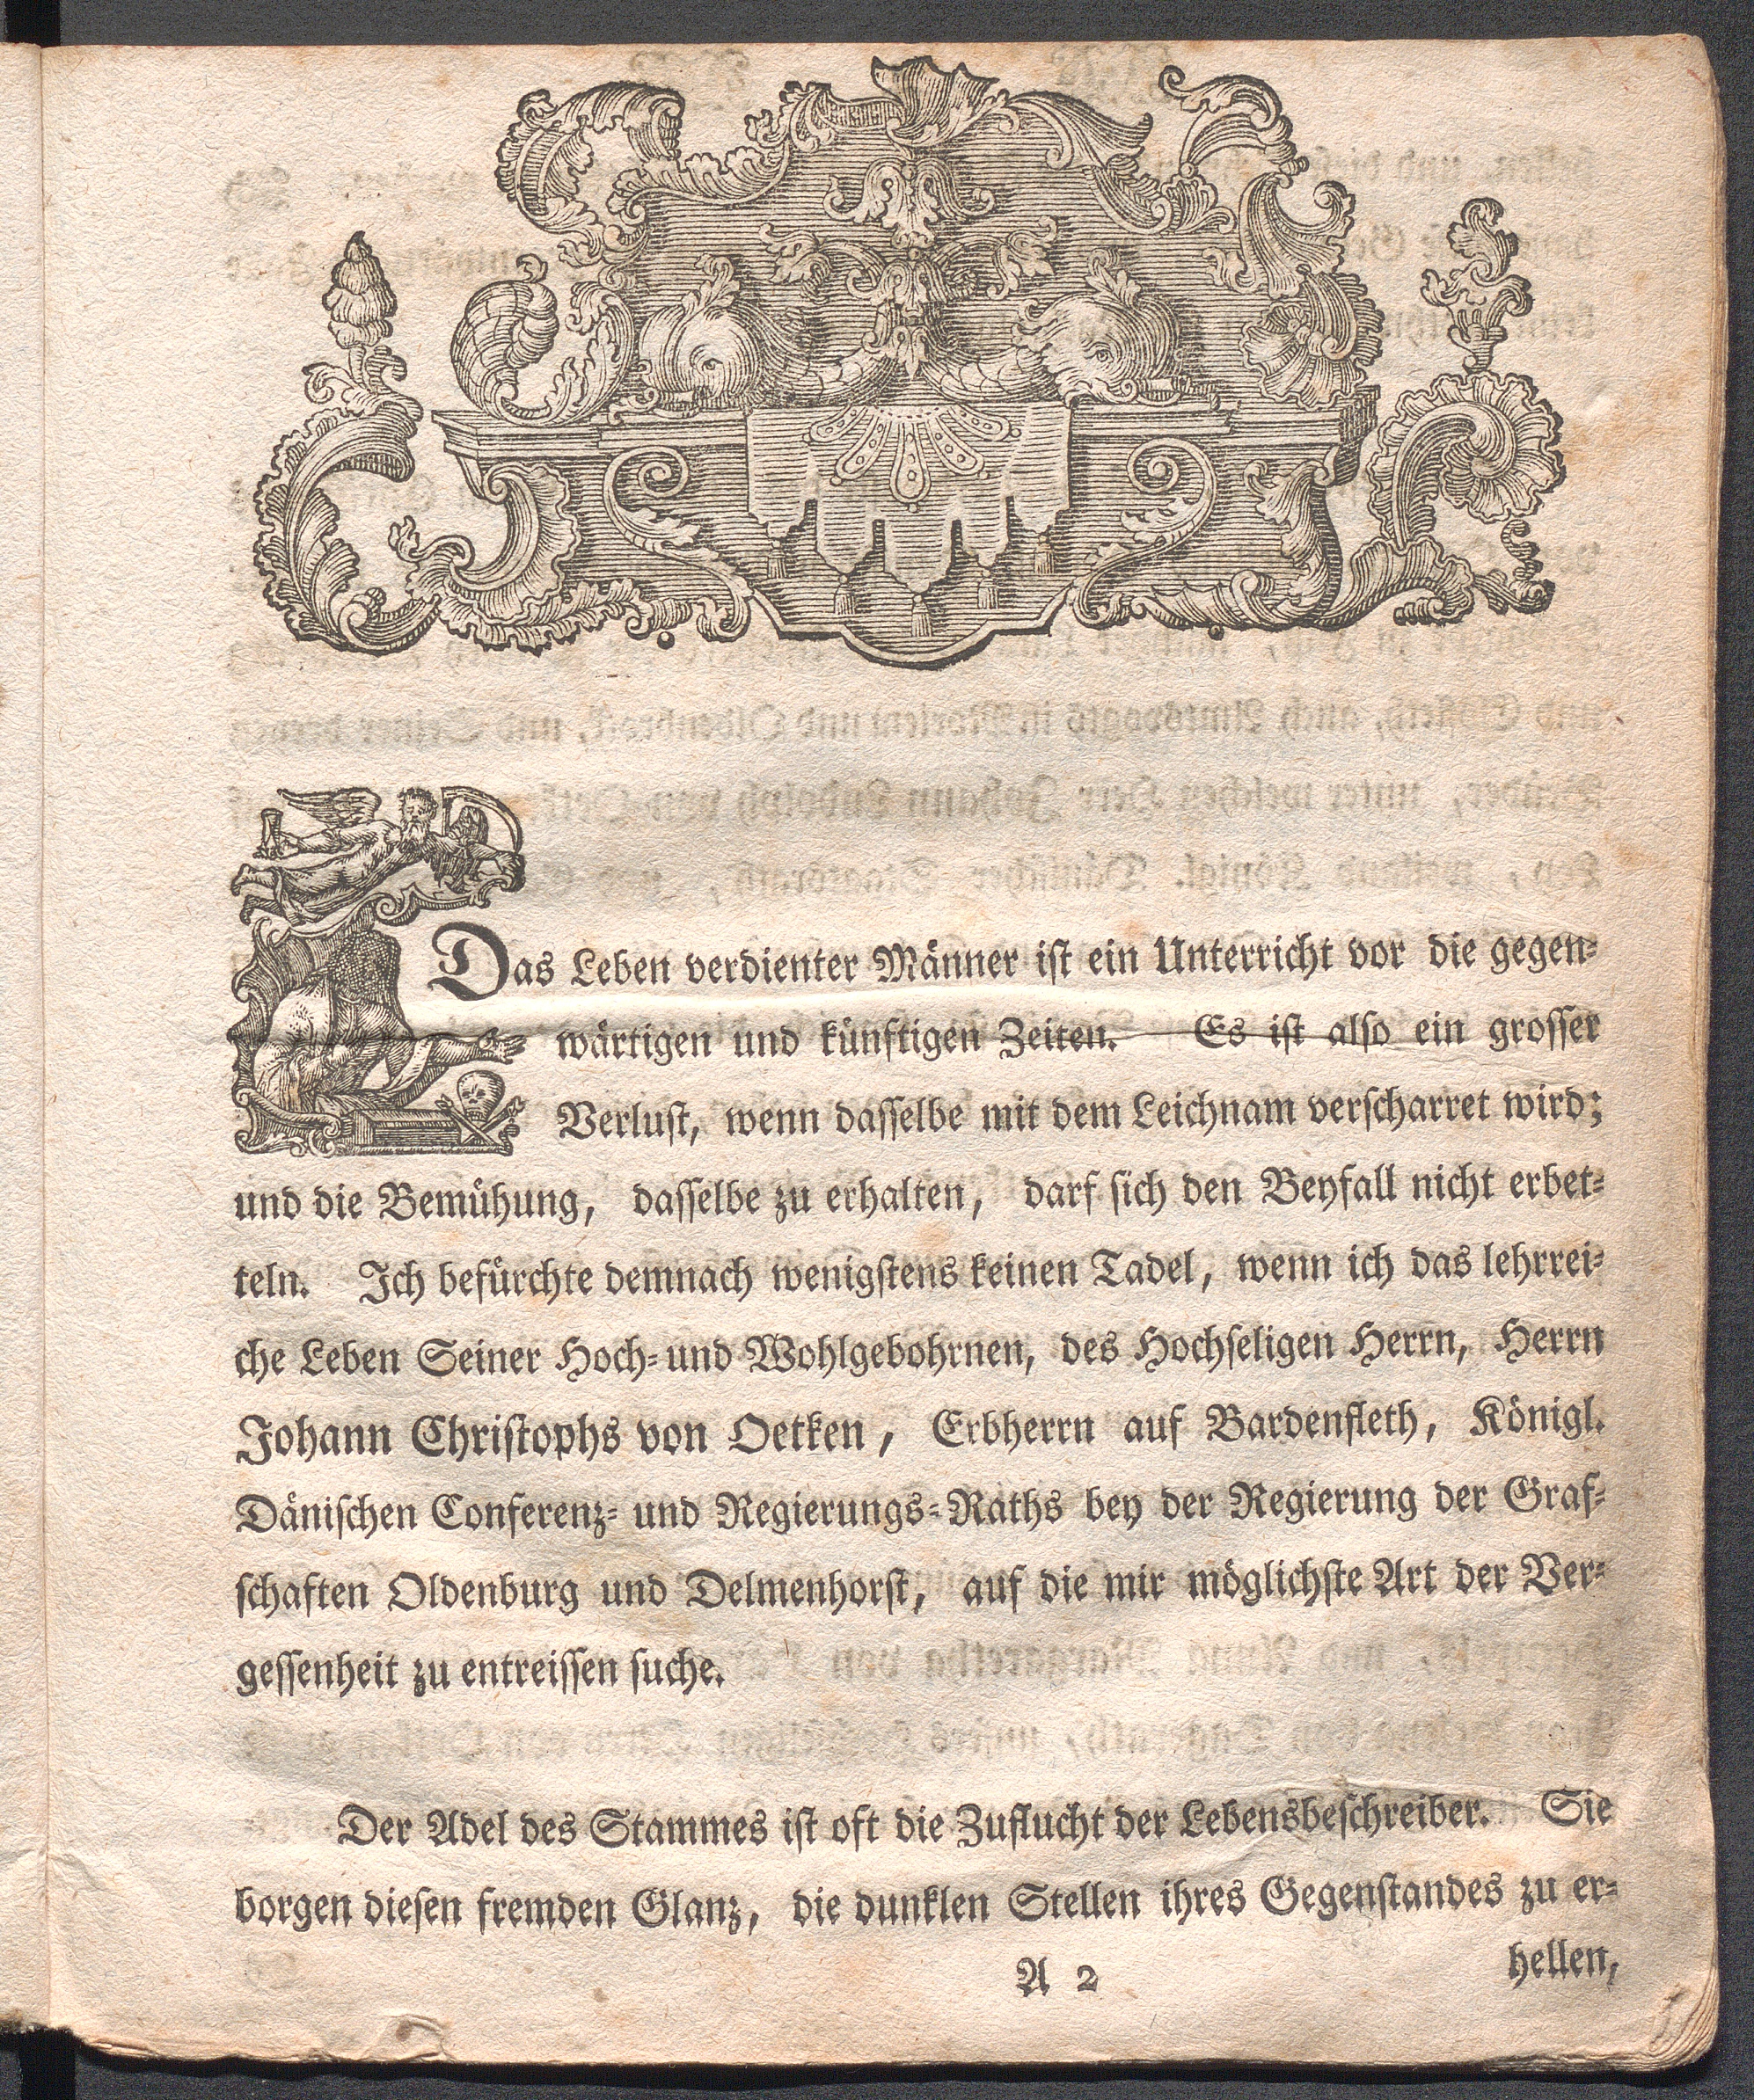 Das Leben verdienter Männer ist ein Unterricht vor die gegen-
wärtigen und künftigen Zeiten. Es ist also ein grosser
Verlust, wenn dasselbe mit dem Leichnam verscharret wird;
und die Bemühung, dasselbe zu erhalten, darf sich den Beyfall nicht erbet-
teln. Ich befürchte demnach wenigstens keinen Tadel, wenn ich das lehrrei-
che Leben Seiner Hoch- und Wohlgebohrnen, des Hochseligen Herrn, Herrn
Johann Christophs von Oetken, Erbherrn auf Bardenfleth, Königl.
Dänischen Conferenz- und Regierungs-Raths bey der Regierung der Graf-
schaften Oldenburg und Delmenhorst, auf die mir möglichste Art der Ver-
gessenheit zu entreissen suche.
Der Adel des Stammes ist oft die Zuflucht der Lebensbeschreiber. Sie
borgen diesen fremden Glanz, die dunklen Stellen ihres Gegenstandes zu er-
A 2
hellen,